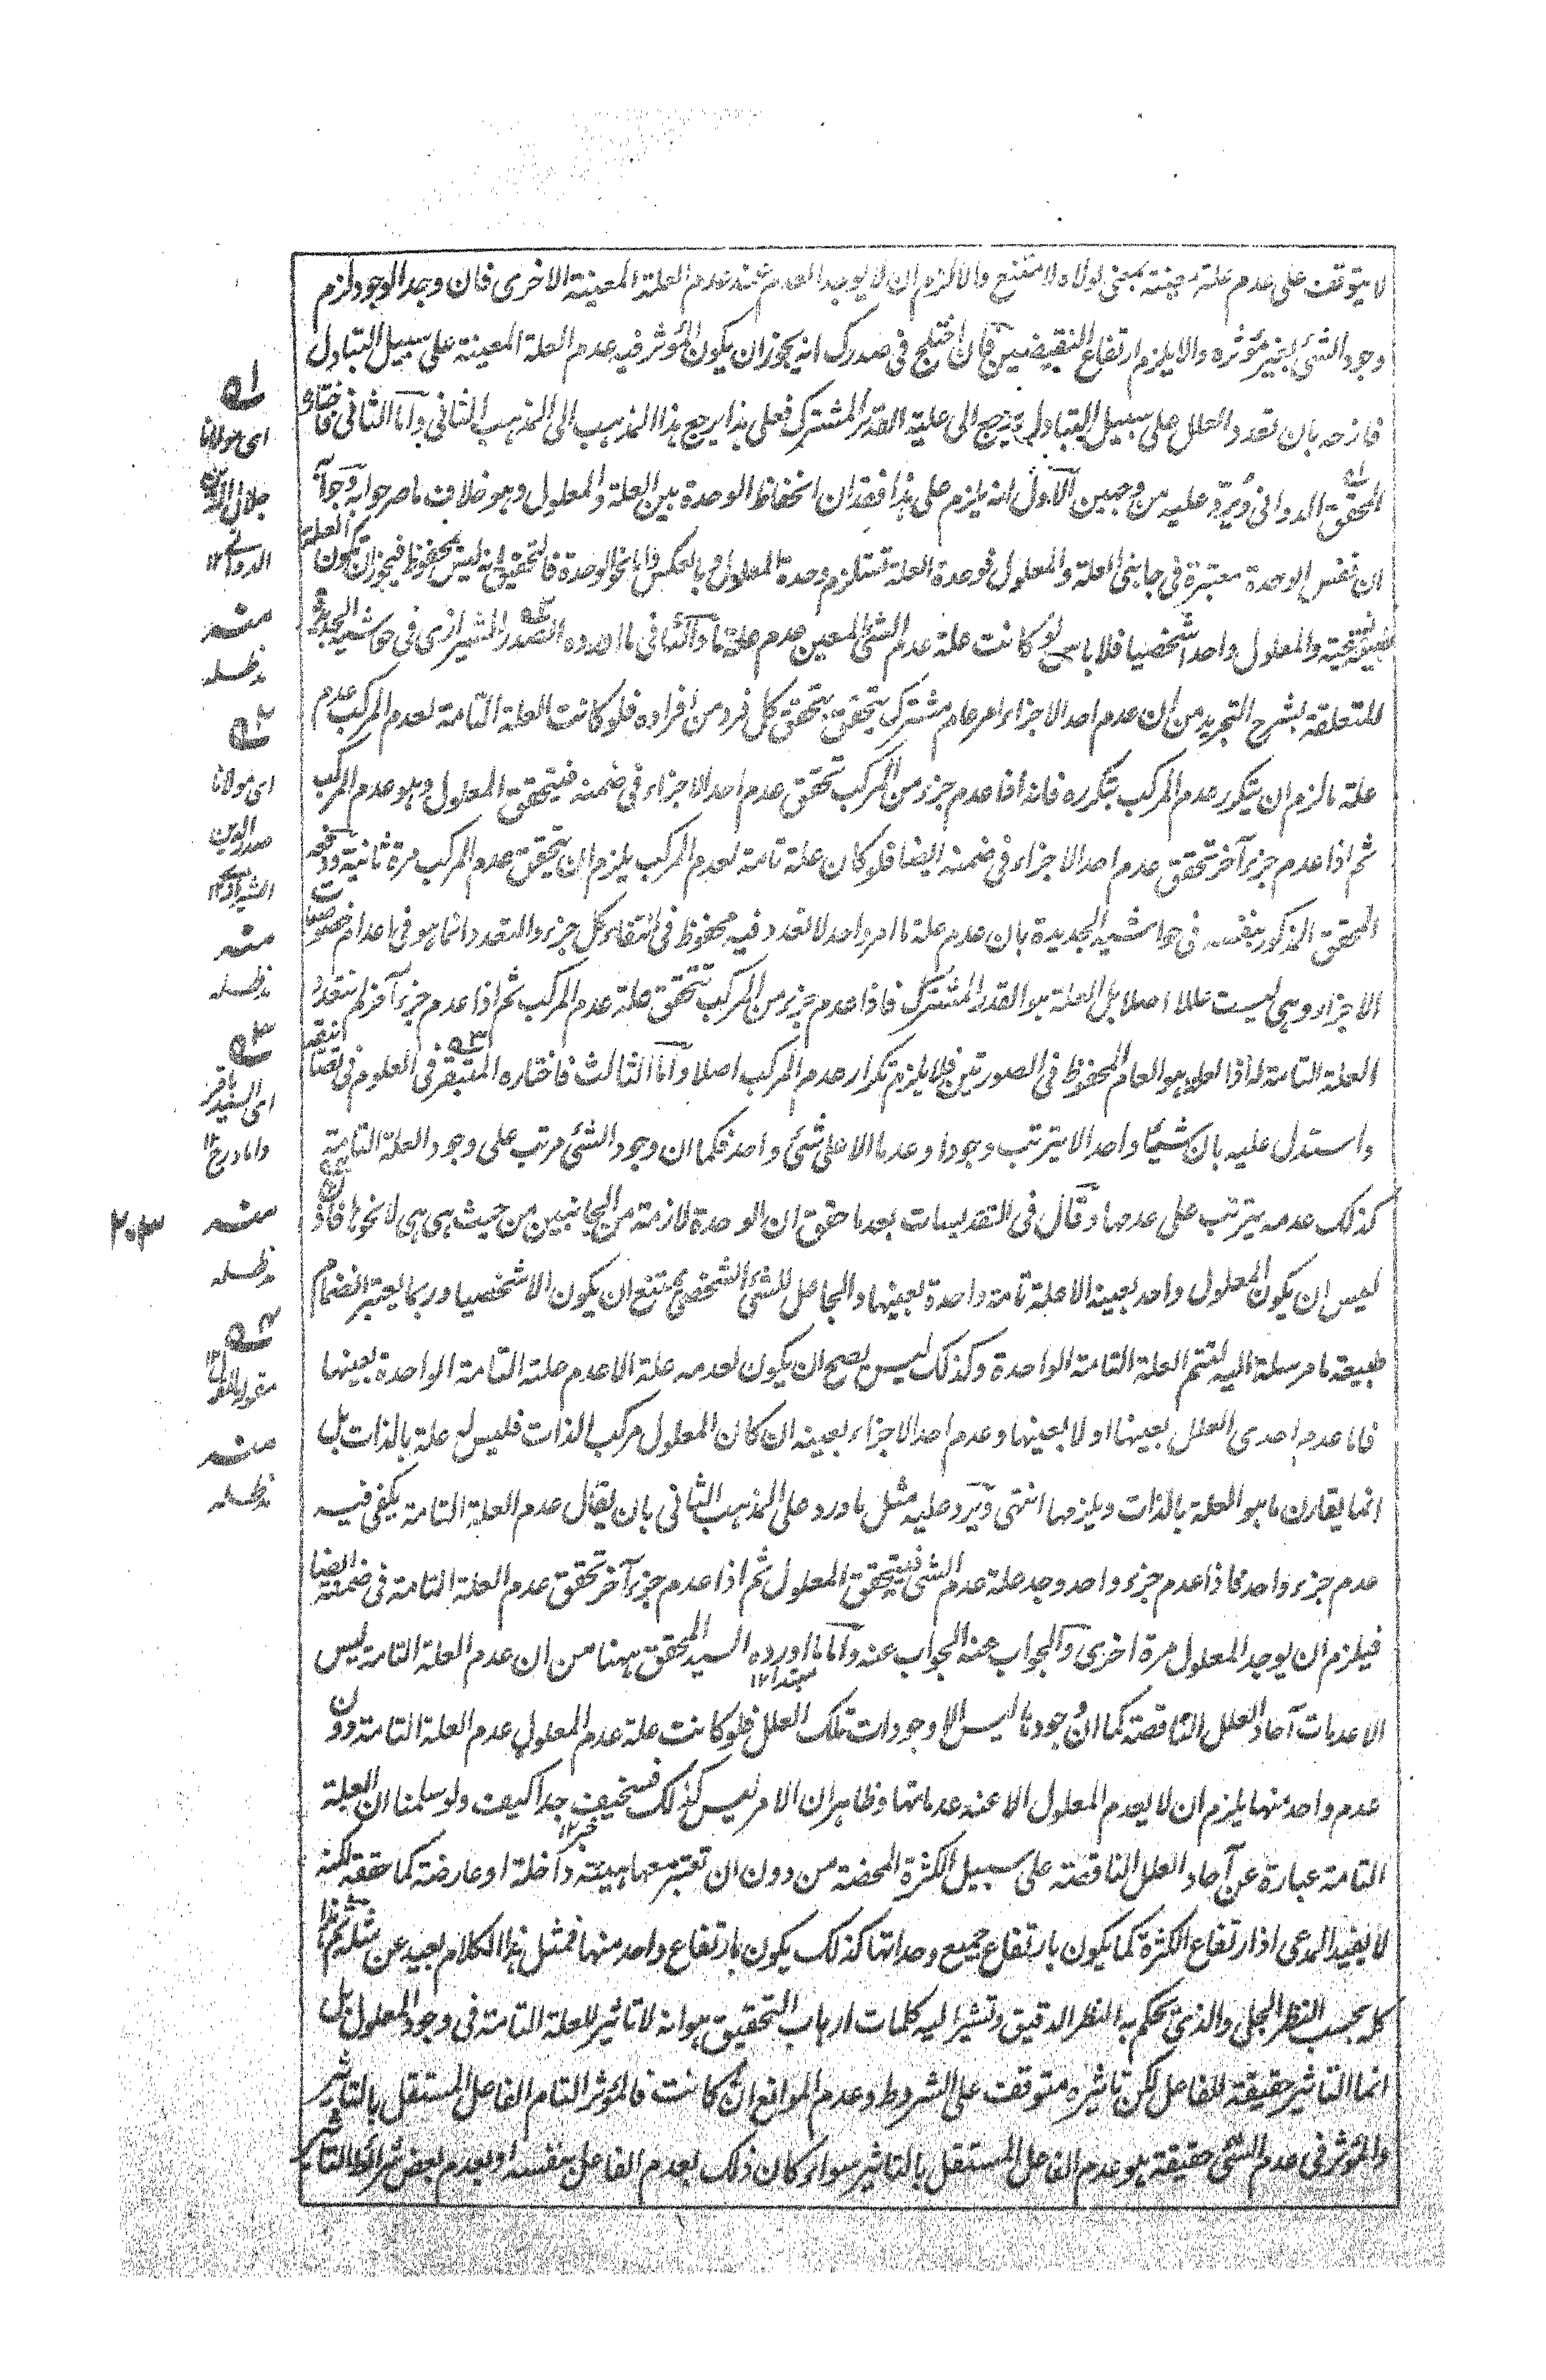 لا يتوقف على عدم علة معينة بمعنى لولاه لامتنع والا لزم ان لا يوجد العدم عند عدم العلة المعينة الاخرى فان وجد الوجود لزم
وجود الشئ بغير مؤثره والا يلزم ارتفاع النقيضين فان اختلج فى صدرك انه يجوز ان يكون المؤثر فيه عدم العلة المعينة على سبيل التبادل
فازحه بان تعدد العلل على سبيل التبادل يرجع الى علية القدر المشترك فعلى هذا يرجع هذا المذهب الى المذهب الثانى واما الثانى فاختاره
المحقق الدوانى ويرد عليه من وجهين الاول انه يلزم على هذا فقدان انحفاظ الوحدة بين العلة والمعلول وهو خلاف ما صرحوا به وجوابه
ان نفس الوحدة معتبرة فى جانبى العلة والمعلول فوحدة العلة تستلزم وحدة المعلول وبالعكس واما نحو الوحدة فالتحقيق انه ليس بمحفوظ فيجوز ان تكون العلة
طبيعية والمعلول واحدا شخصيا فلا باس لو كانت علة عدم الشئ المعين عدم علة ما والثانى ما اورده الصدر الشيرازى فى حاشيته الجديدة
المتعلقة بشرح التجريد من ان عدم احد الاجزاء امر عام مشترك يتحقق بتحقق كل فرد من افراده فلو كانت العلة التامة لعدم المركب عدم
علة ما لزم ان يتكرر عدم المركب بتكرره فانه اذا عدم جزء من المركب تحقق عدم احد الاجزاء فى ضمنه فيتحقق المعلول وهو عدم المركب
ثم اذا عدم جزء آخر تحقق عدم احد الاجزاء فى ضمنه ايضا فلو كان علة تامة لعدم المركب يلزم ان يتحقق عدم المركب مرة ثانية ودفعه
المحقق المذكور بنفسه فى حواشيه الجديدة بان عدم علة ما امر واحد لا تعدد فيه محفوظ فى انتفاء كل جزء والتعدد انما هو فى اعدام خصوصيات
الاجزاء وهى ليست عللا اصلا بل العلة هو القدر المشترك فاذا عدم جزء من المركب تتحقق علة عدم المركب ثم اذا عدم جزء آخر لم تتعدد
العلة التامة له اذ العلة هو العام المحفوظ فى الصورتين فلا يلزم تكرار عدم المركب اصلا واما الثالث فاختاره المتبقر فى العلوم فى تصانيفه
واستدل عليه بان شيئا واحدا لا يترتب وجودا وعدما الا على شئ واحد فكما ان وجود الشئ مرتب على وجود العلة التامة
كذلك عدمه يترتب على عدمها وقال فى التقديسات بعد ما حقق ان الوحدة لازمة من الجانبين من حيث هى هى لا نحوها فاذن
ليس ان يكون المعلول واحد بعينه الا علة تامة واحدة بعينها والجاعل للشئ الشخصى يمتنع ان يكون الا شخصيا وربما يعتبر انضمام
طبيعة ما مرسلة اليه لتتم العلة التامة الواحدة وكذلك ليس يصح ان يكون لعدمه علة الا عدم علته التامة الواحدة بعينها
فاما عدم احدى العلل بعينها او لا بعينها وعدم احد الاجزاء بعينه ان كان المعلول مركب الذات فليس له علة بالذات بل
انما يقارن ما هو العلة بالذات ويلزمها انتهى ويرد عليه مثل ما ورد على المذهب الثانى بان يقال عدم العلة التامة يكفى فيه
عدم جزء واحد فاذا عدم جزء واحد وجد علة عدم الشئ فيتحقق المعلول ثم اذا عدم جزء آخر تحقق عدم العلة التامة فى ضمنه ايضا
فيلزم ان يوجد المعلول مرة اخرى والجواب عنه الجواب عنه واما ما اورده السيد المحقق ههنا من ان عدم العلة التامة ليس
مبتدا ١٢
الا عدمات آحاد العلل الناقصة كما ان وجودها ليس الا وجودات تلك العلل فلو كانت علة عدم المعلول عدم العلة التامة دون
عدم واحد منها يلزم ان لا يعدم المعلول الا عند عدماتها وظاهر ان الامر ليس كذلك فسخيف جدا كيف ولو سلمنا ان العلة
خبر ١٢
التامة عبارة عن آحاد العلل الناقصة على سبيل الكثرة المحضة من دون ان تعتبر معها هيئة داخلة او عارضة كما حققه لكنه
لا يفيد المدعى اذ ارتفاع الكثرة كما يكون بارتفاع جميع وحداتها كذلك يكون بارتفاع واحد منها فمثل هذا الكلام بعيد عن مثله ثم هذا
كله بحسب النظر الجلى والذى يحكم به النظر الدقيق وتشير اليه كلمات ارباب التحقيق هو انه لا تاثير للعلة التامة فى وجود المعلول بل
انما التاثير حقيقة للفاعل لكن تاثيره متوقف على الشروط وعدم الموانع ان كانت فالمؤثر التام الفاعل المستقل بالتاثير
والمؤثر فى عدم الشئ حقيقة هو عدم الفاعل المستقل بالتاثير سواء كان ذلك بعدم الفاعل بنفسه او بعدم بعض شرائط التاثير
ــه١
اى مولانا
جلال الدين
الدوانى ١٢
منه
مد ظله
ــه٢
اى مولانا
صدر الدين
الشيرازى ١٢
منه
مد ظله
ــه٣
اى السيد باقر
داماد رح ١٢
منه
مد ظله
ــه٤
مقوله القول ١٢
منه
مد ظله
٢٠٣